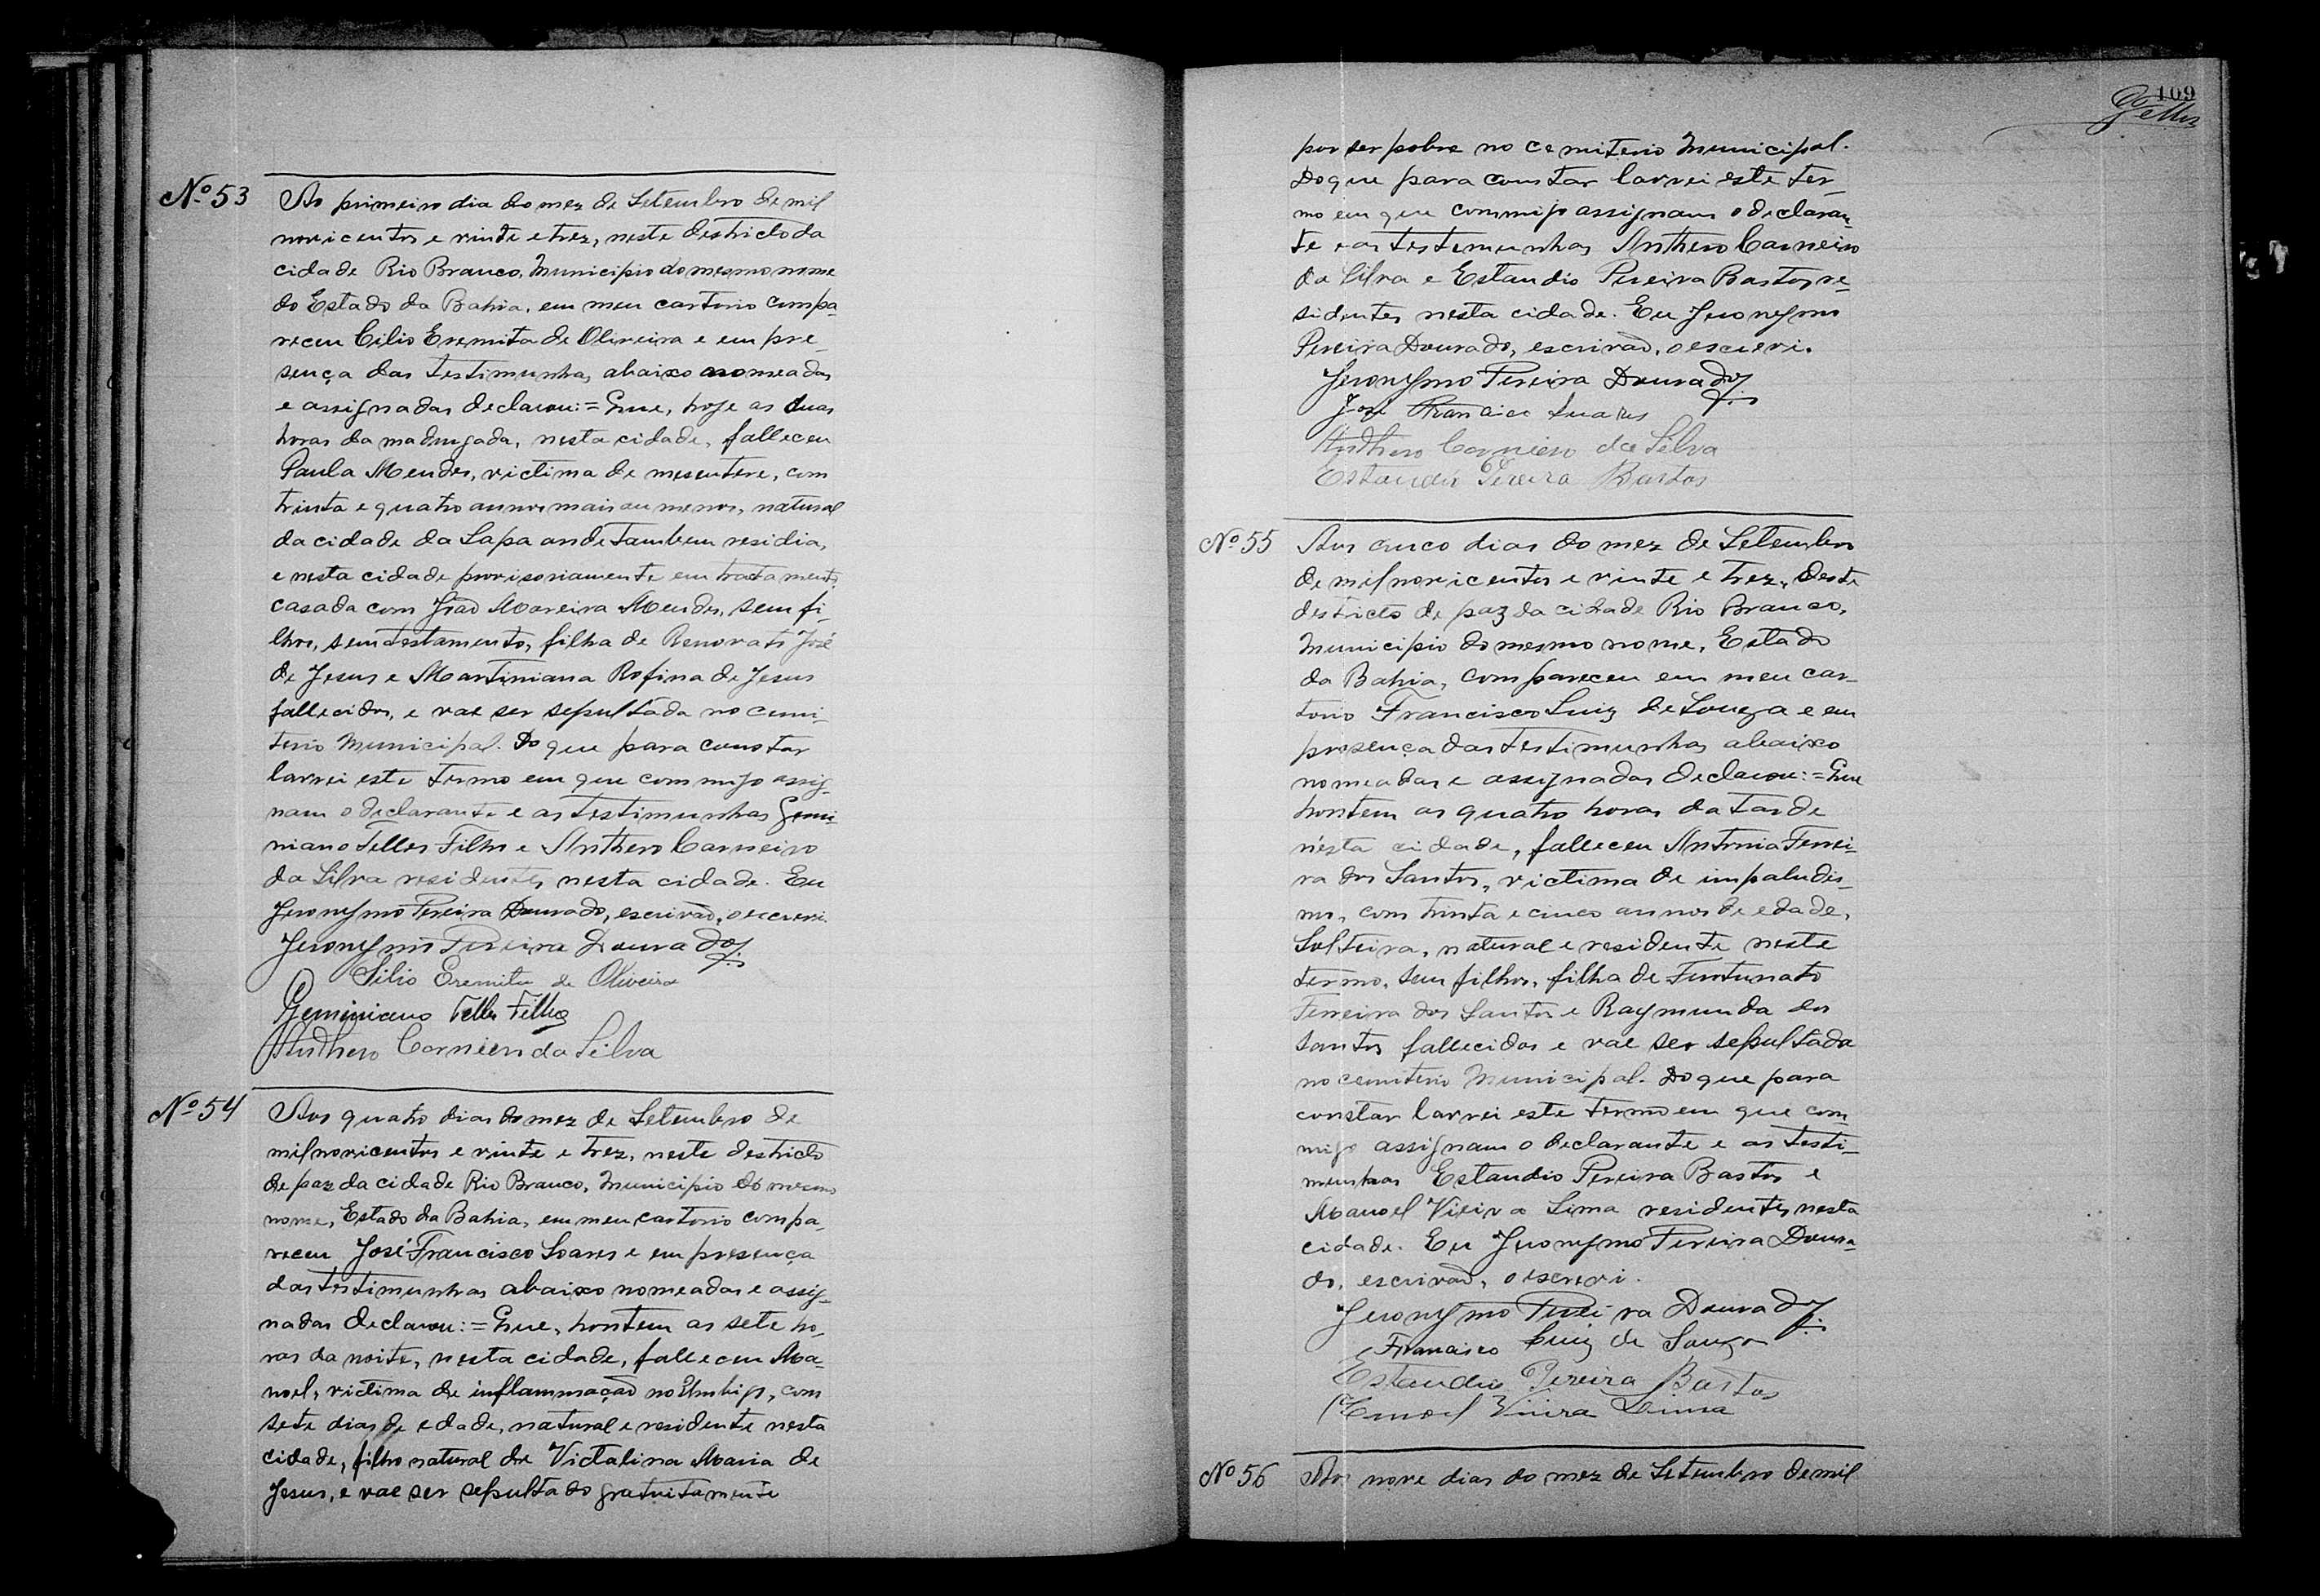 Nº 53
Ao primeiro dia do mez de Setembro de mil
novicentos e vinte e trez, neste destricto da
cidade Rio Branco, Municipio do mesmo nome
do Estado da Bahia, em meu cartorio compa-
receu Cilio Eremita de Oliveira e em pre-
sença das testimunhas abaixo nomeadas
e assignadas declarou: = Que, hoje as duas
horas da madrugada, nesta cidade, falleceu
Paula Mendes, victima de mesentere, com
trinta e quatro annos mais ou menos, natural
da cidade da Lapa onde tambem residia,
e nesta cidade provisoriamente em tratamento,
casada com João Moreira Mendes, sem fi-
lhos, sem testamento, filha de Renovato José
de Jesus e Martiniana Rofina de Jesus
fallecidos, e vae ser sepultada no cemi-
terio Municipal. Do que para constar
lavrei este termo em que commigo assig-
nam o declarante e as testimunhas Gemi-
niano Telles Filho e Anthero Carneiro
da Silva residentes nesta cidade. Eu
Jeronymo Pereira Dourado, escrivão, o escrevi.
Jeronymo Pereira Dourado
Silio Eremita de Oliveira
Geminiano Telles Filho
Anthero Carneiro da Silva
Nº 54
Aos quatro dias do mez de Setembro de
mil novicentos e vinte e trez, neste destricto
de paz da cidade Rio Branco, Municipio do mesmo
nome, Estado da Bahia, em meu cartorio compa-
receu José Francisco Soares e em presença
das testimunhas abaixo nomeadas e assig-
nadas declarou: = Que, hontem as sete ho-
ras da noite, nesta cidade, falleceu Ma-
noel, victima de inflammação no Umbigo, com
sete dias de edade, natural e residente nesta
cidade, filho natural de Victalina Maria de
Jesus, e vae ser sepultado gratuitamente
109
Telles
por ser pobre no cemiterio Municipal.
Do que para constar lavrei este ter-
mo em que commigo assignam o declaran-
te e as testemunhas Anthero Carneiro
da Silva e Estaudio Pereira Bastos re-
sidentes nesta cidade. Eu Jeronymo
Pereira Dourado, escrivão, o escrevi.
Jeronymo Pereira Dourado
José Francisco Suares
Anthero Carneiro da Silva
Estaudio Pereira Bastos
Nº 55
Aos cinco dias do mez de Setembro
de mil novicentos e vinte e trez, deste
destricto de paz da cidade Rio Branco,
Municipio do mesmo nome, Estado
da Bahia, compareceu em meu car-
torio Francisco Luiz de Souza e em
presença das testimunhas abaixo
nomeadas e assignadas declarou: = Que
hontem as quatro horas da tarde
nésta cidade, falleceu Antonia Ferrei-
ra dos Santos, victima de impaludis-
mo, com trinta e cinco annos de edade,
Solteira, natural e residente neste
termo, sem filhos, filha de Furtunato
Ferreira dos Santos e Raymunda dos
Santos fallecidos e vae ser sepultada
no cemiterio Municipal. Do que para
constar lavrei este termo em que com-
migo assignam o declarante e as testi-
munhas Estaudio Pereira Bastos e
Manoel Vieira Lima residentes nesta
cidade. Eu Jeronymo Pereira Doura-
do, escrivão, o escrevi.
Jeronymo Pereira Dourado
Francisco Luiz de Souza
Estaudio Pereira Bastos
Manoel Vieira Lima
Nº 56
Aos nove dias do mez de Setembro de mil